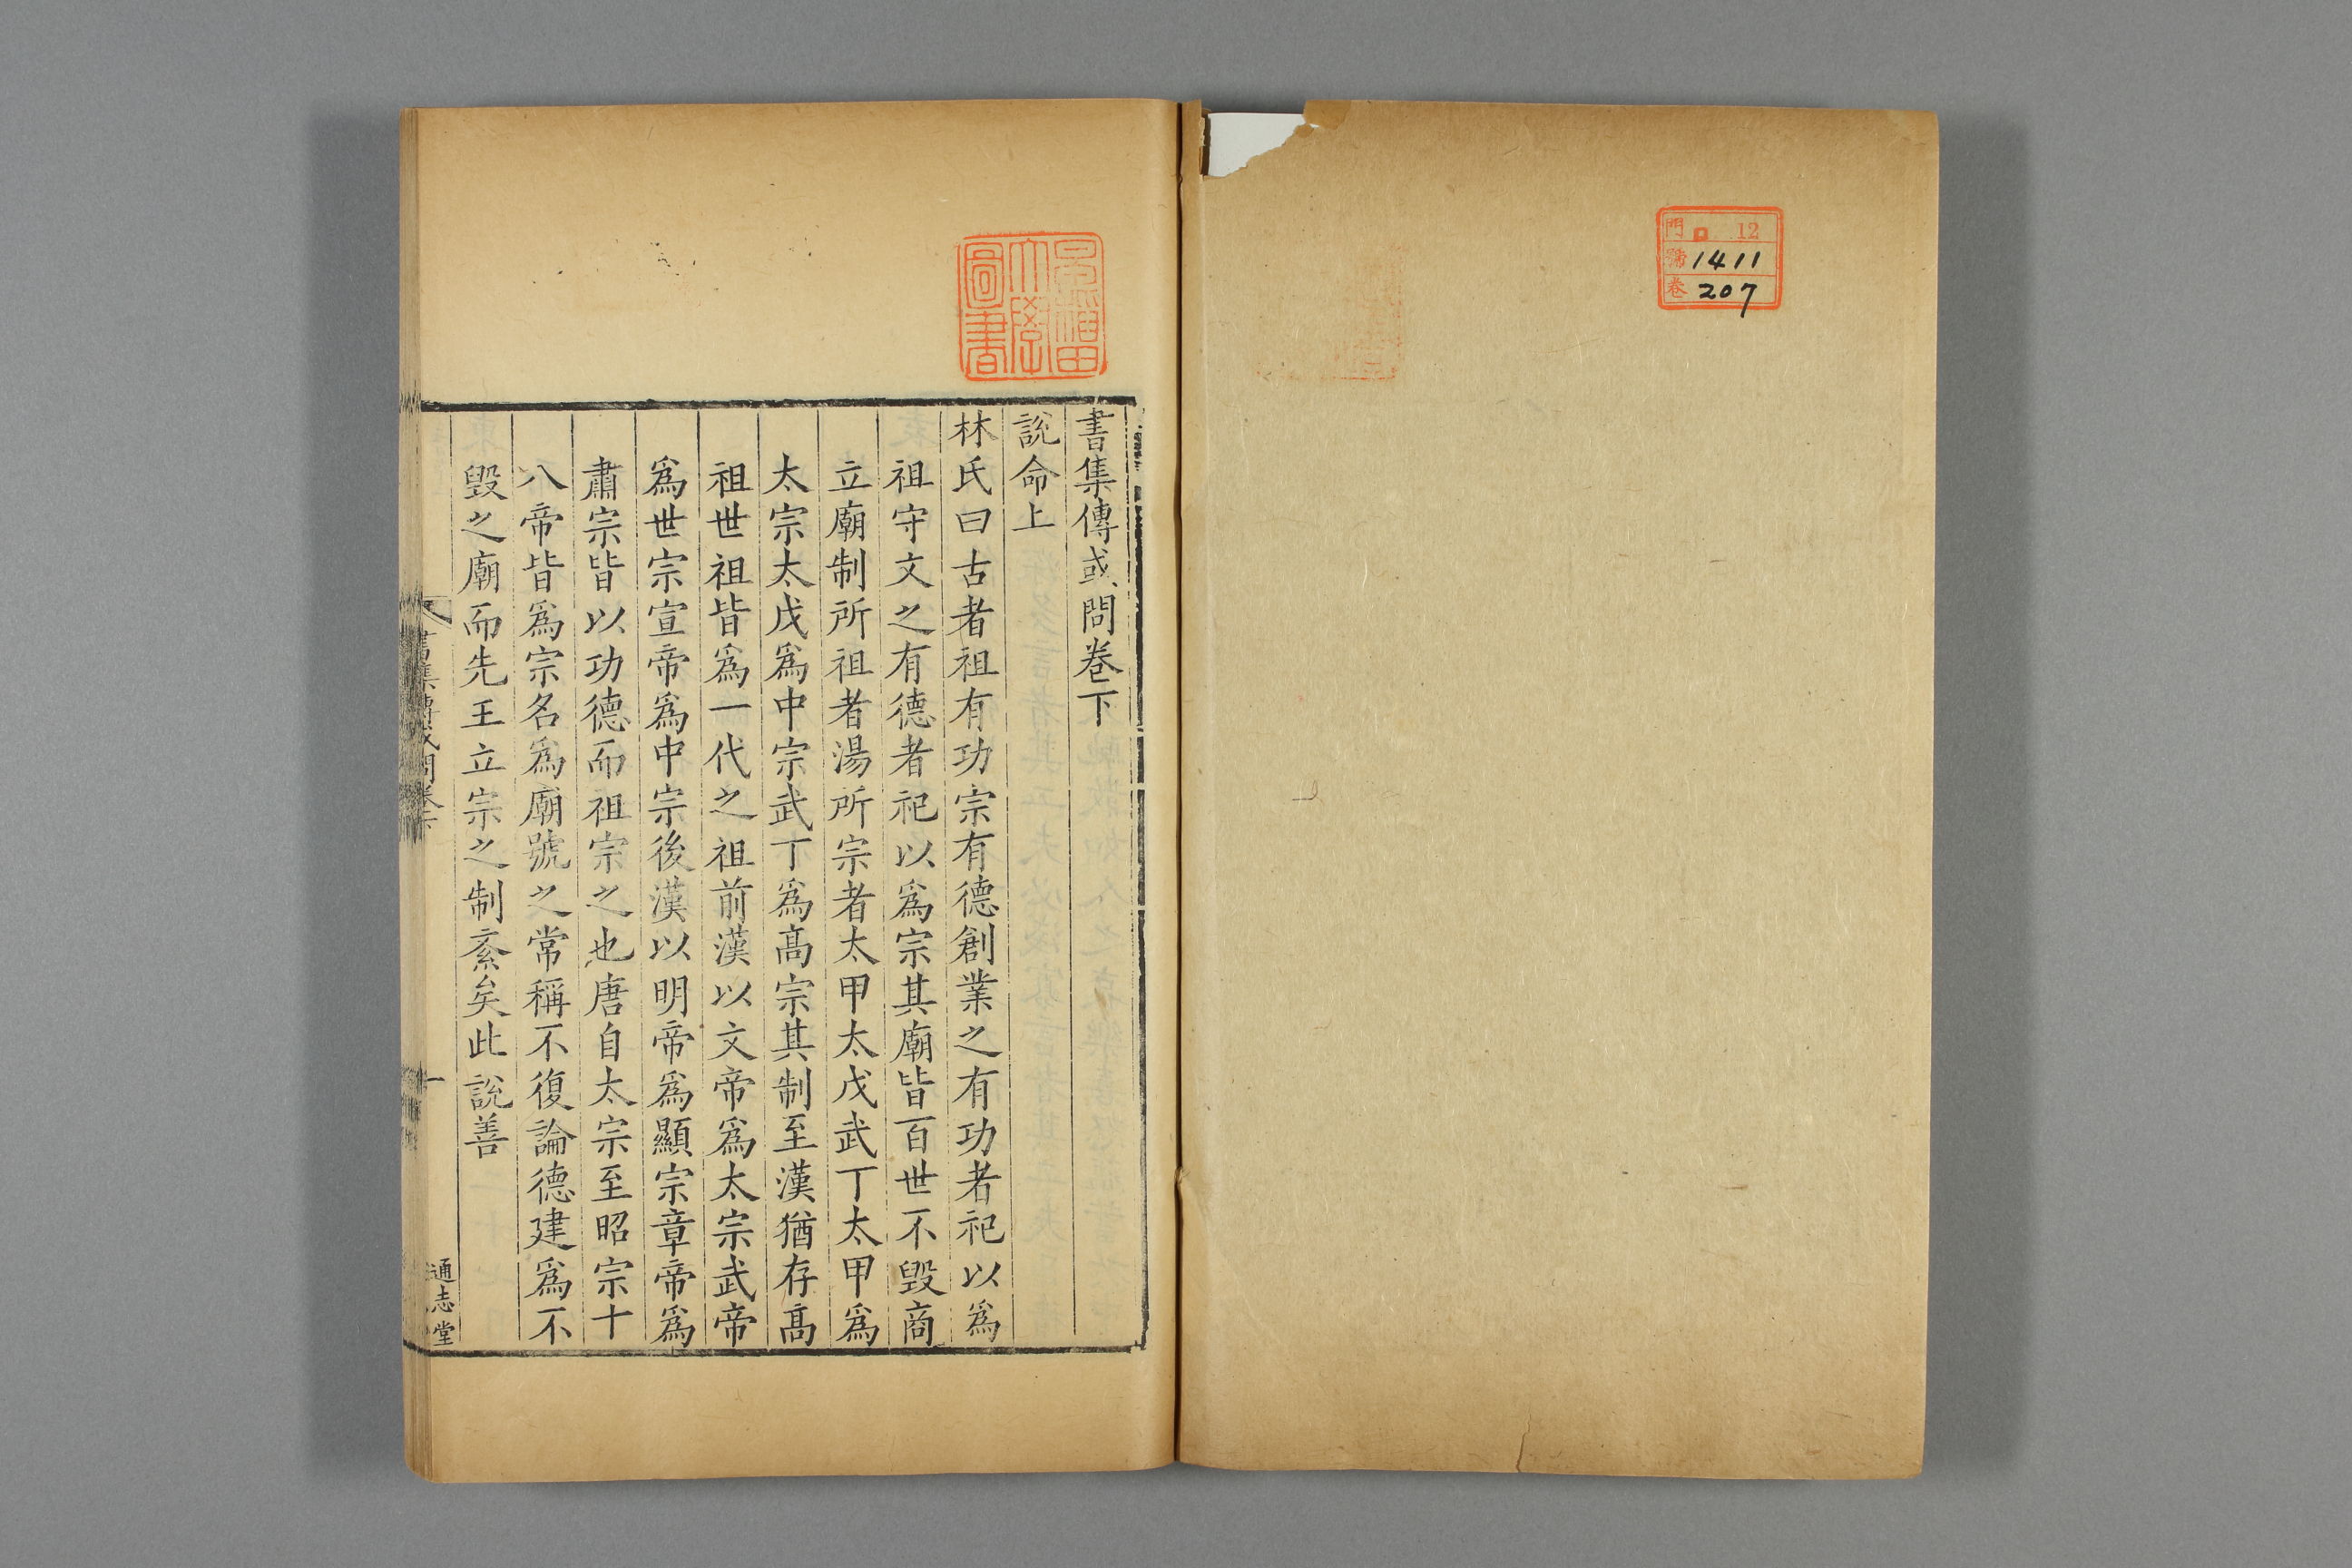 門 ロ 12
號 1411
卷 207
書集傳或問卷下
說命上
林氏曰古者祖有功宗有德創業之有功者祀以爲
祖守文之有德者祀以爲宗其廟皆百世不毀商
立廟制所祖者湯所宗者太甲太戊武丁太甲爲
太宗太戊爲中宗武丁爲高宗其制至漢猶存高
祖世祖皆爲一代之祖前漢以文帝爲太宗武帝
爲世宗宣帝爲中宗後漢以明帝爲顯宗章帝爲
肅宗皆以功德而祖宗之也唐自太宗至昭宗十
八帝皆爲宗名爲廟號之常稱不復論德建爲不
毀之廟而先王立宗之制紊矣此說善
書集傳或問卷下
一
通志堂
早稻田大學圖書